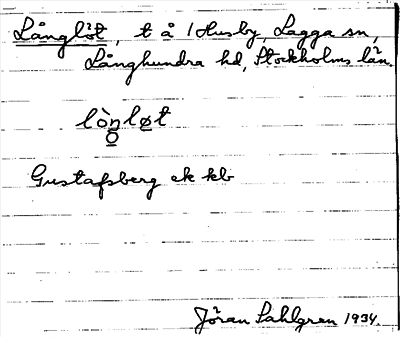 Långlöt, t å 1 Husby, Lagga sn,
Långhundra hd, Stockholms län.
lòŋløt
Gustafsberg ek kb
Jöran Sahlgren 1934.